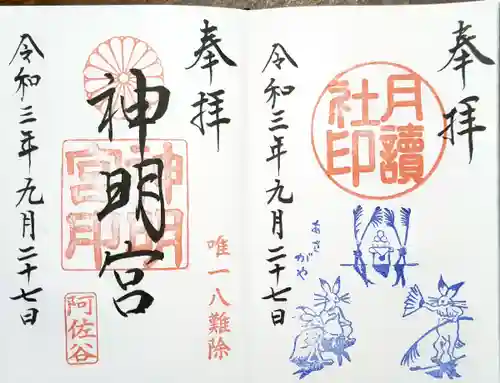 奉拝
月讀社印
あさがや
令和三年九月二十七日
奉拝
神明宮
神明宮印
唯一八難除
阿佐谷
令和三年九月二十七日